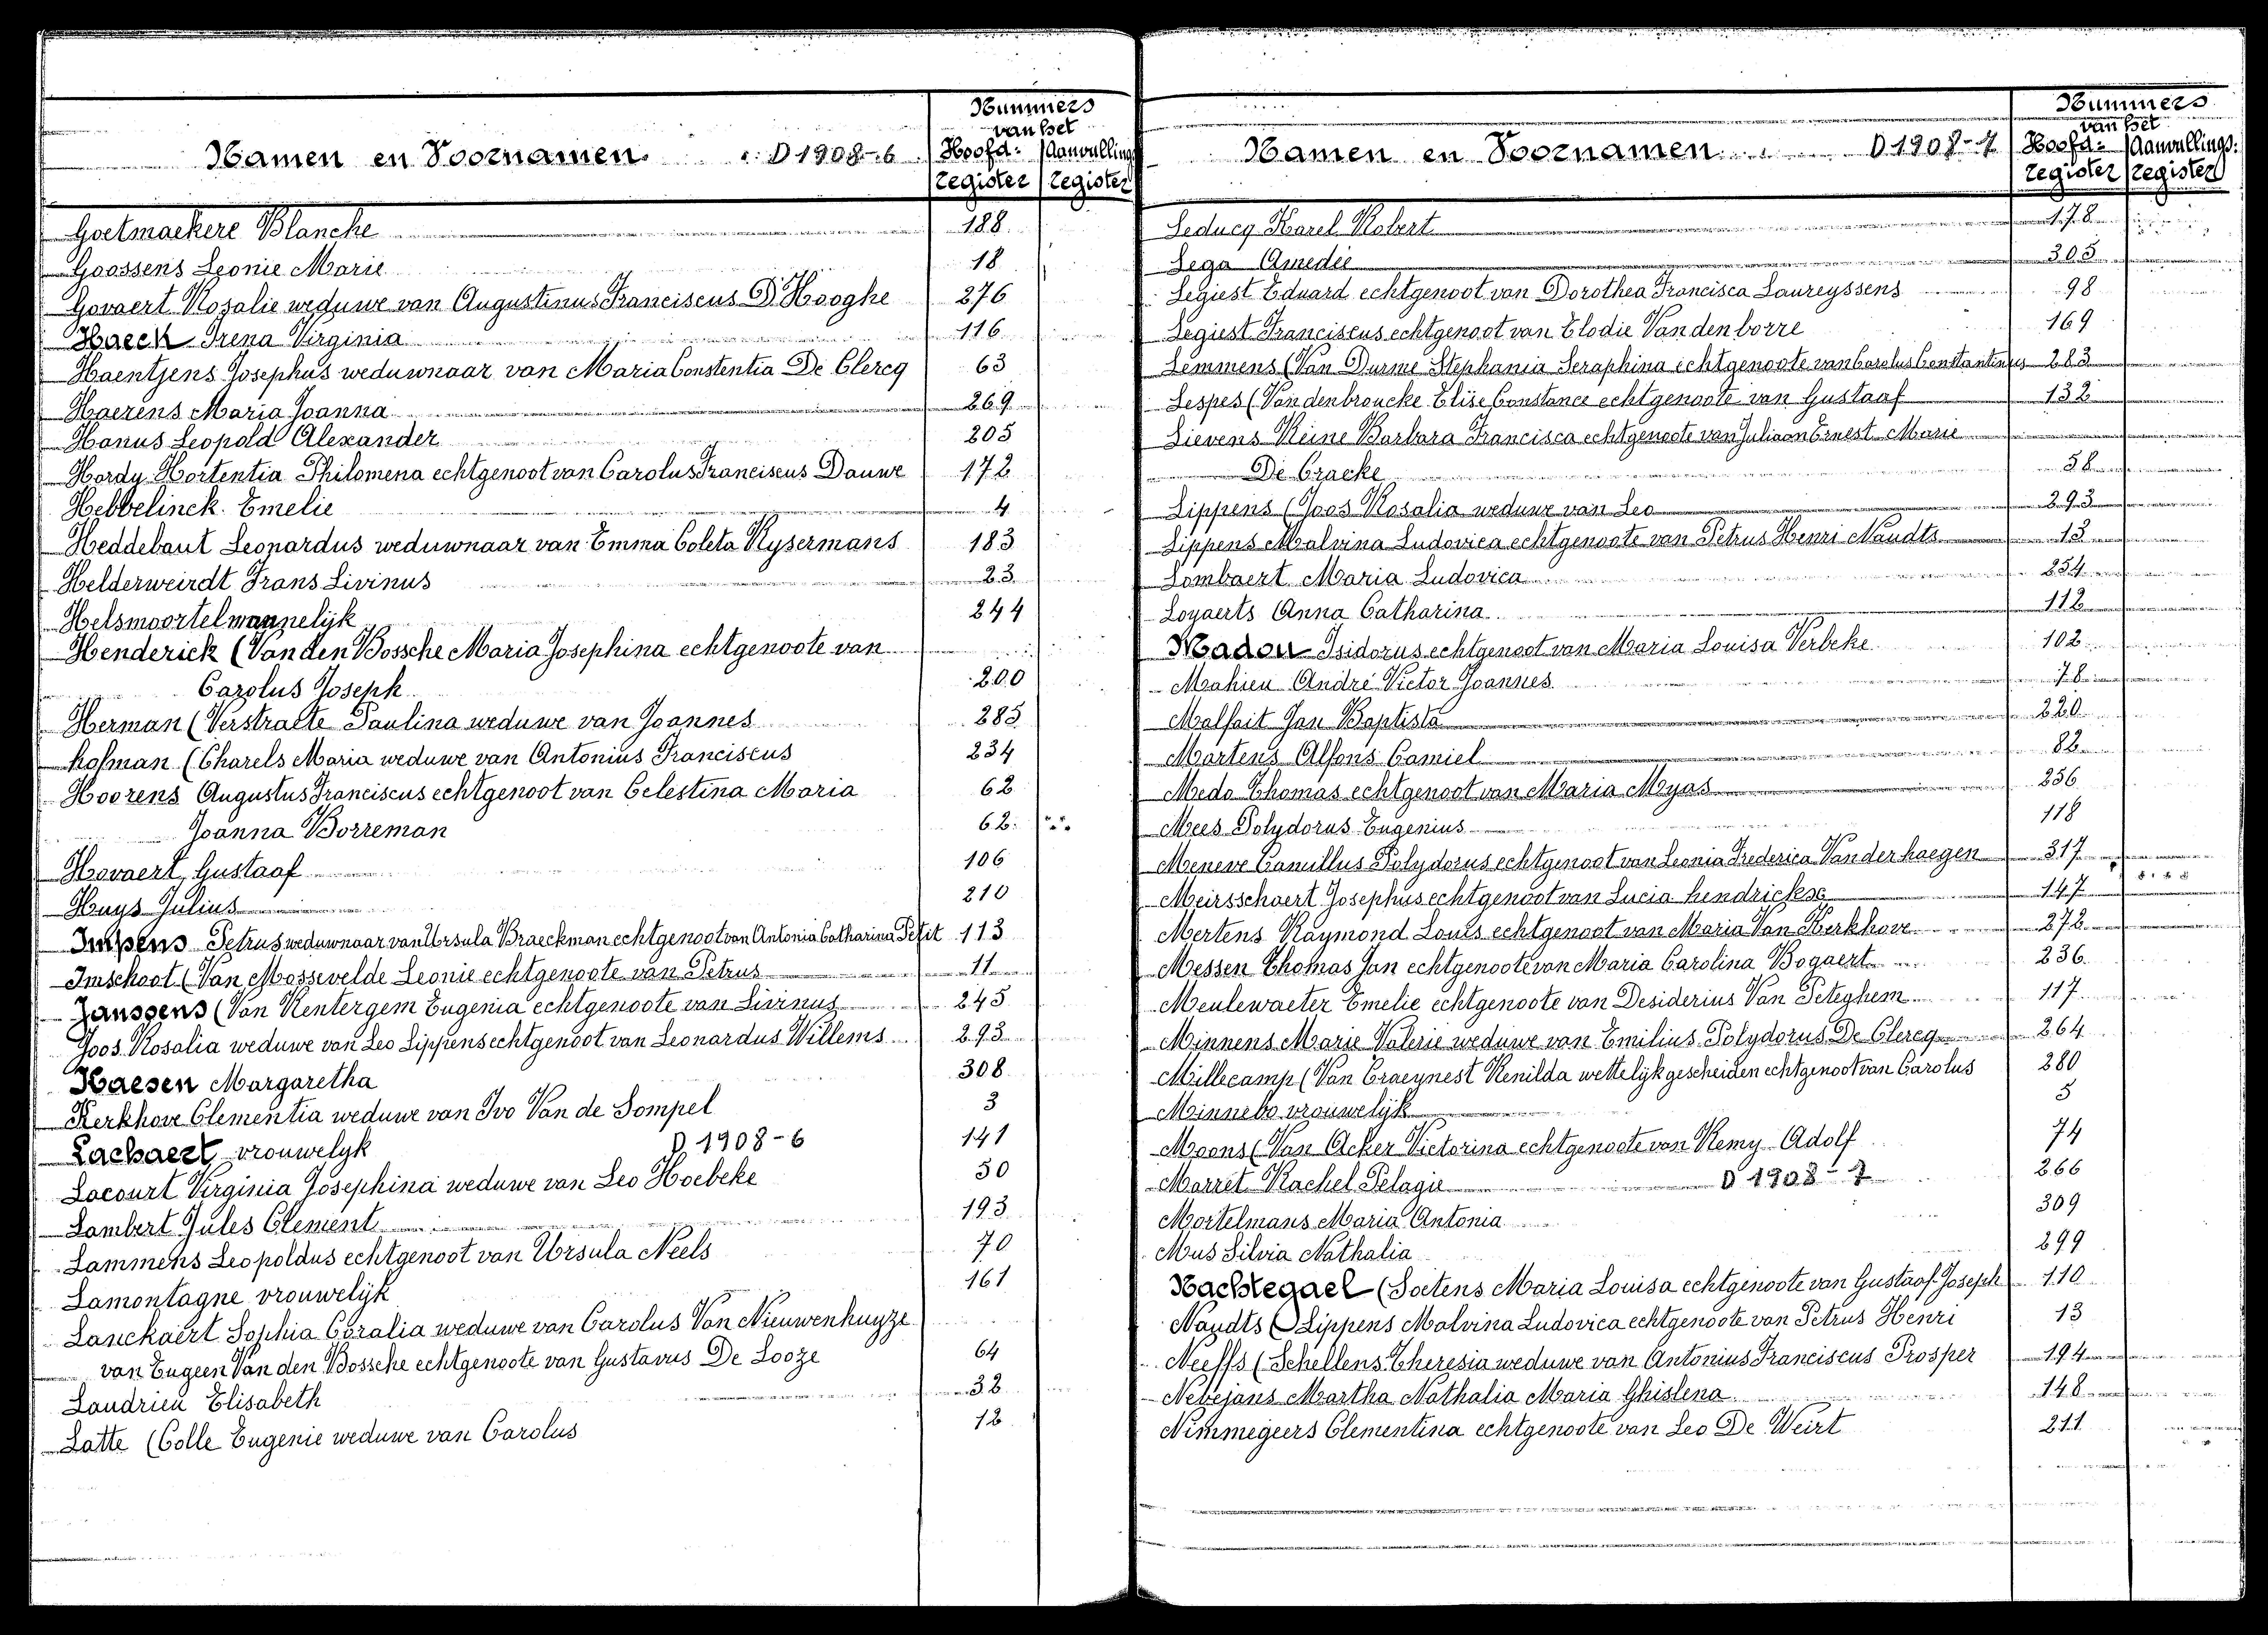 Nummers
van het
Namen en Voornamen. D 1908-6 Hoofd: Aanvullings
register register
Goetmackere Blanche 188
Goossens Leonie Marie 18
Govaert Rosalie weduwe van Augustinus Franciscus D'Hooghe 276
Haeck Irena Virginia 116
Haentjens Josephus weduwnaar van Maria Constentia De Clercq 63
Haerens Maria Joanna 269
Hanus Leopold Alexander 205
Hardy Hortentia Philomena echtgenoot van Carolus Franciscus Dauwe 172
Hebbelinck Emelie 4
Heddebaut Leonardus weduwnaar van Emma Coleta Rysermans 183
Helderweirdt Frans Livinus 23
Helsmoortel mannelijk 244
Henderick (Van den Bossche Maria Josephina echtgenoote van
Carolus Joseph 200
Herman (Verstraete Paulina weduwe van Joannes 285
hofman (Charels Maria weduwe van Antonius Franciscus 234
Hoorens Augustus Franciscus echtgenoot van Celestina Maria 62
Joanna Borreman 62
Hovaert Gustaaf 106
Huys Julius 210
Impens Petrus weduwnaar van Ursula Braeckman echtgenoot van Antonia Catharina Petit 113
Imschoot (Van Mossevelde Leonie echtgenoote van Petrus 11
Janssens (Van Kentergem Eugenia echtgenoote van Livinus 245
Joos Rosalia weduwe van Leo Lippens echtgenoot van Leonardus Willems 293
Kaesen Margaretha 308
Kerkhove Clementia weduwe van Ivo Van de Sompel 3
Lachaert vrouwelyk D 1908-6 141
Lacourt Virginia Josephina weduwe van Leo Hoebeke 50
Lambert Jules Clement 193
Lammens Leopoldus echtgenoot van Ursula Neels 70
Lamontagne vrouwelijk 161
Lanckaert Sophia Coralia weduwe van Carolus Van Nieuwenhuyze
van Eugeen Van den Bossche echtgenoote van Gustavus De Looze 64
Landrieu Elisabeth 32
Latte (Colle Eugenie weduwe van Carolus 12
Nummers
van het
Namen en Voornamen D 1908-7 Hoofd: Aanvullings:
register register
Leducq Karel Robert 178
Lega Amedée 305
Legiest Eduard echtgenoot van Dorothea Francisca Laureyssens 98
Legiest Franciscus echtgenoot van Elodie Vandenborre 169
Lemmens (Van Durme Stephania Seraphina echtgenoote van Carolus Constantinus 283
Lespes (Vandenbroucke Elise Constance echtgenoote van Gustaaf 132
Lievens Reine Barbara Francisca echtgenoote van Juliaan Ernest Marie
De Cracke 58
Lippens (Joos Rosalia weduwe van Leo 293
Lippens Malvina Ludovica echtgenoote van Petrus Henri Naudts 13
Lombaert Maria Ludovica 254
Loyaerts Anna Catharina 112
Madou Isidorus echtgenoot van Maria Louisa Verbeke 102
Mahieu André Victor Joannes 78
Malfait Jan Baptista 220
Martens Alfons Camiel 82
Meda Thomas echtgenoot van Maria Myas 256
Mees Polydorus Eugenius 118
Meneve Camillus Polydorus echtgenoot van Leonia Frederica Vanderhaegen 317
Meirsschaert Josephus echtgenoot van Lucia hendrickse 147
Mertens Raymond Louis echtgenoot van Maria Van Kerkhove 272
Messen Thomas Jan echtgenoote van Maria Carolina Bogaert 236
Meulewaeter Emelie echtgenoote van Desiderius Van Peteghem 117
Minnens Marie Valerie weduwe van Emilius Polydorus De Clercq 264
Millecamp (Van Craeynest Renilda wettelyk gescheiden echtgenoot van Carolus 280
Minnebo vrouwelijk 5
Moons (Van Acker Victorina echtgenoote van Remy Adolf 74
Morret Rachel Pelagie D 1908-7 266
Mortelmans Maria Antonia 309
Mus Silvia Nathalia 299
Nachtegael (Soetens Maria Louisa echtgenoote van Gustaaf Joseph 110
Naudts (Lippens Malvina Ludovica echtgenoote van Petrus Henri 13
Neeffs (Schellens Theresia weduwe van Antonius Franciscus Prosper 194
Nevejans Martha Nathalia Maria Ghislena 148
Nimmegeers Clementina echtgenoote van Leo De Weirt 211